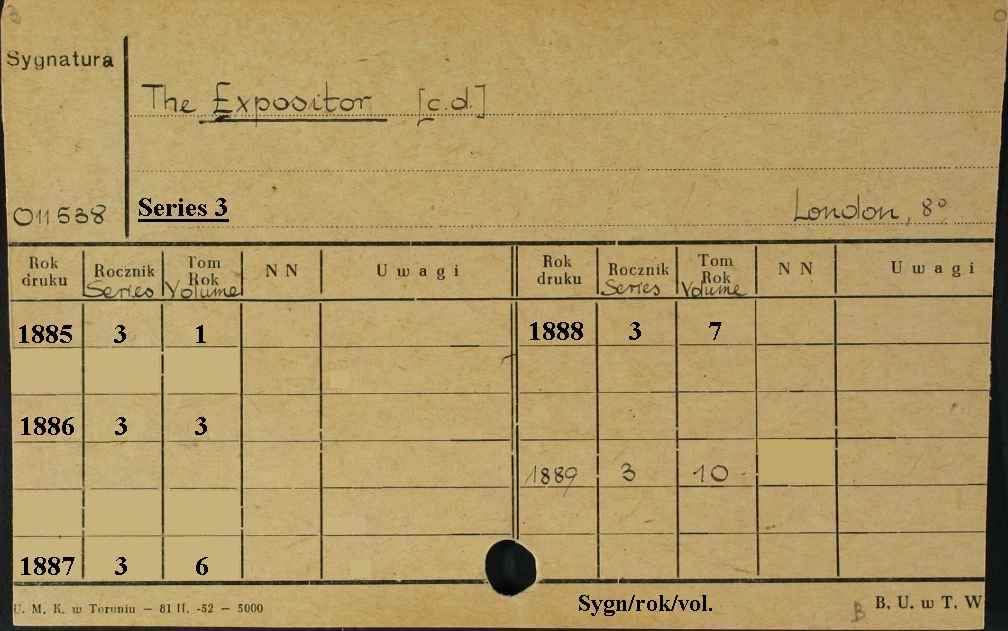 Sygnatura
The Expositor [c.d.]
011538 Series 3 London, 8°
Rok druku Rocznik Series Tom Rok Volume N N Uwagi Rok druku Rocznik Series Tom Rok Volume N N Uwagi
1885 3 1 1888 3 7
1886 3 3
1889 3 10
1887 3 6
U. M. K. w Toruniu — 81 II. -52 — 5000 Sygn/rok/vol. B B. U. w T. W